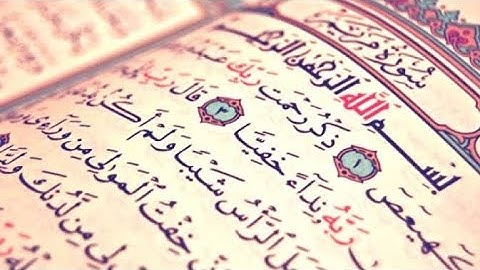 سُورَةُ مَرْيَمَ
بِسْمِ اللَّهِ الرَّحْمَٰنِ الرَّحِيمِ
كٓهيعٓصٓ ١ ذِكْرُ رَحْمَتِ رَبِّكَ
رَبَّهُۥ نِدَآءً خَفِيًّا ٣ قَالَ رَبِّ
الرَّأْسُ شَيْبًا وَلَمْ أَكُنۢ
خِفْتُ الْمَوَٰلِىَ مِن وَرَآءِى
مِن لَّدُنكَ